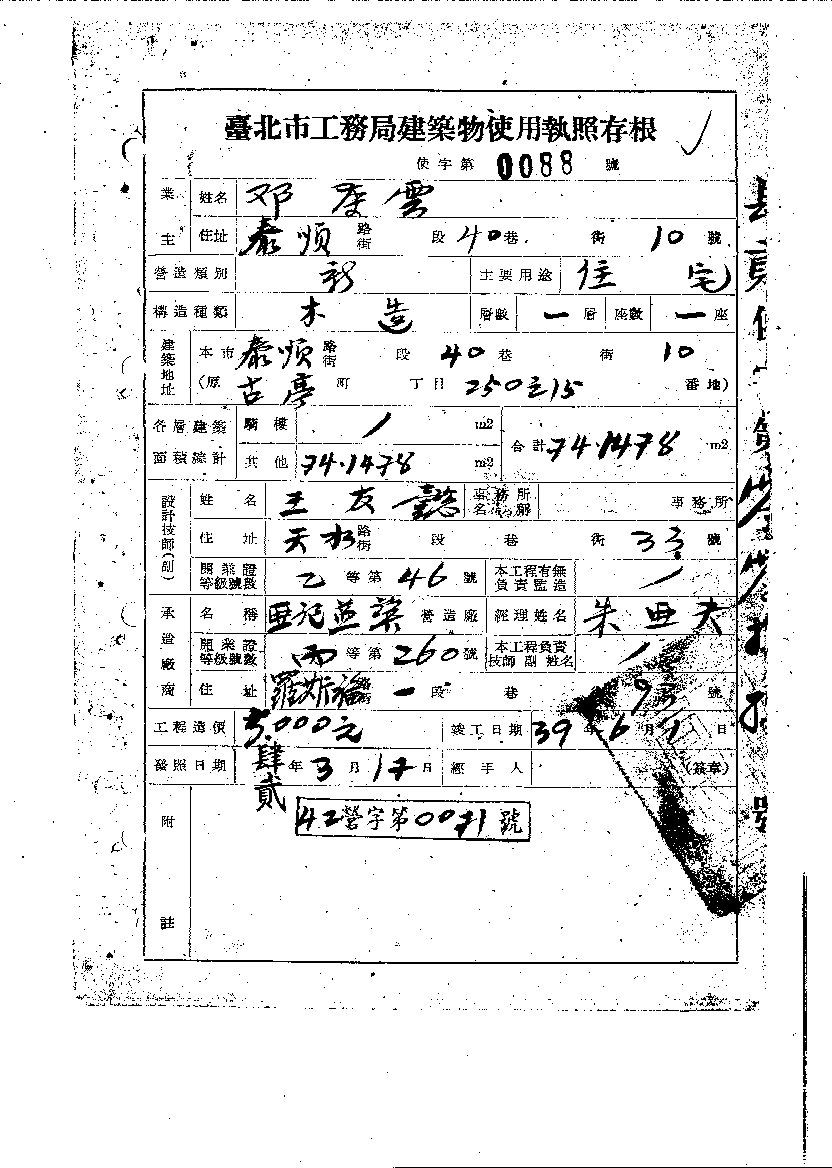 臺北市工務局建築物使用執照存根
使字第 0088 號
業主 姓名 邓季雲
住址 泰順 路街 段 40 巷 街 10 號
營造類別 新 主要用途 住宅
構造種類 木造 層數 一 層 座數 一 座
建築地址 本市 泰順 路街 段 40 巷 街 10
(原 古亭 町 丁目 250之15 番地)
各層建築面積總計 騎樓 / m2 合計 74.1478 m2
其他 74.1478 m2
設計技師(副) 姓名 王友 事務所名稱 事務所
住址 天水 路街 段 巷 街 3 號
開業證等級號數 乙 等第 46 號 本工程有無負責監造 /
承造廠商 名稱 營造廠 經理姓名 朱亜夫
開業證等級號數 丙 等第 260 號 本工程負責技師 副 姓名 /
住址 羅斯福 一 段 巷 93 號
工程造價 5.000元 竣工日期 39 年 6 月 日
發照日期 肆貳 年 3 月 17 日 經手人 (簽章)
42營字第0071號
附註